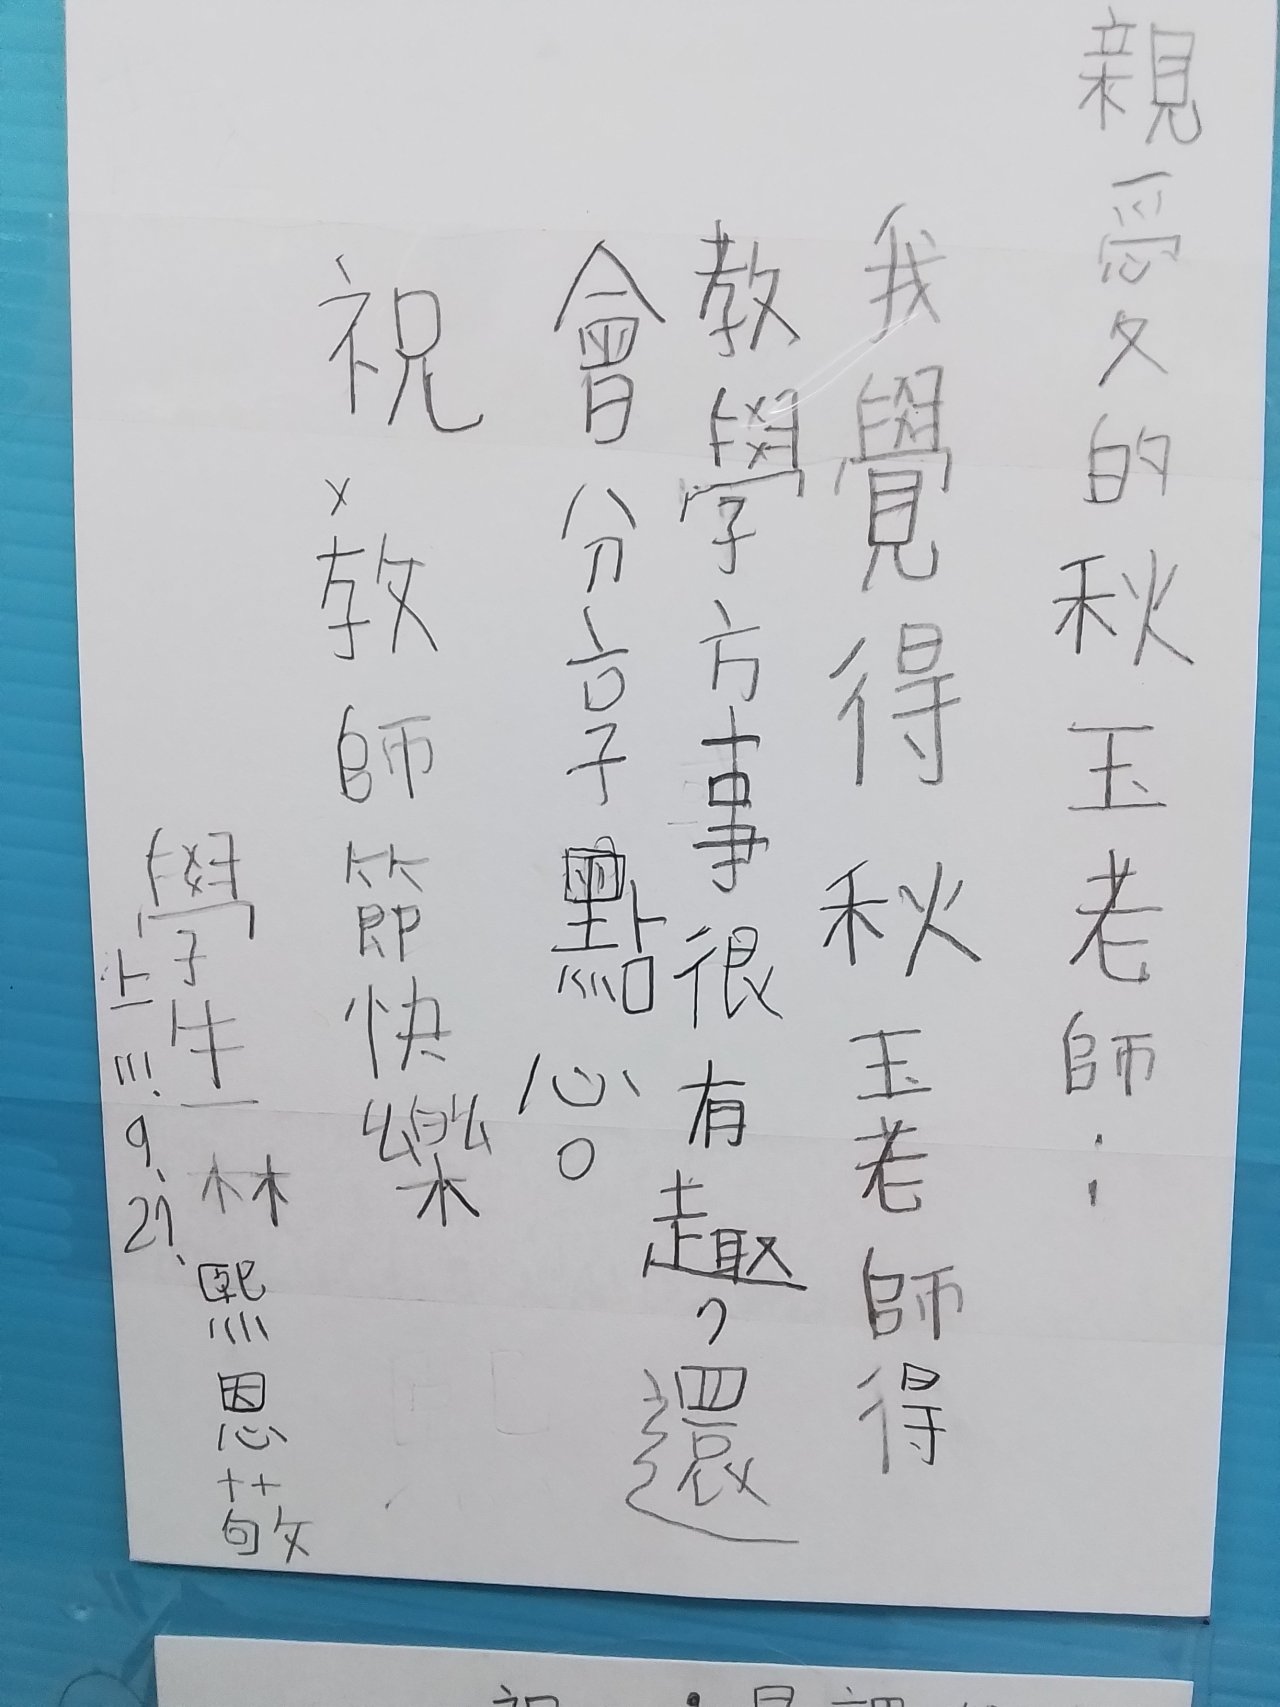 親愛的秋玉老師：
我覺得秋玉老師得
教學方事很有趣，還
會分享點心。
祝
教師節快樂
學生林熙恩敬
上111.9.27.